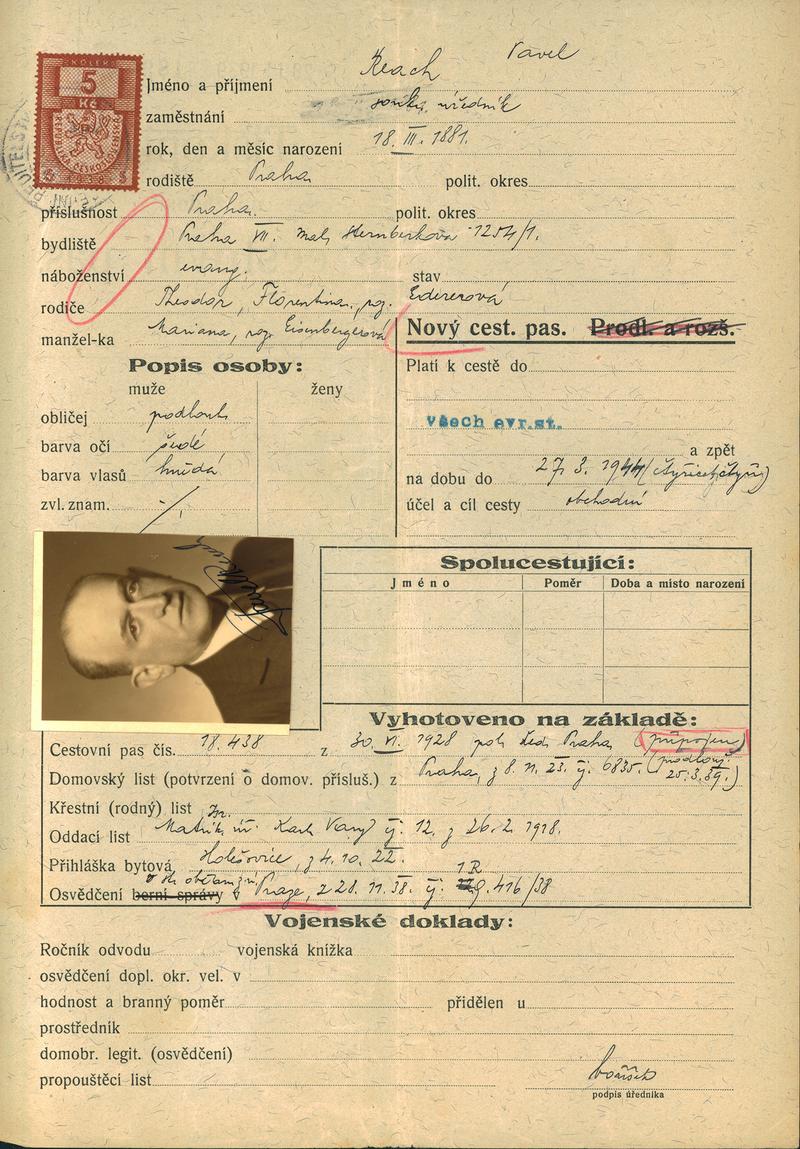 KOLEK
5
Kč
REPUBLIKA ČESKOSLOVENSKÁ
Jméno a příjmení Reach Pavel
zaměstnání soukr. úředník
rok, den a měsíc narození 18. III. 1881.
rodiště Praha polit. okres
příslušnost Praha. polit. okres
bydliště Praha VII. Malá Sternberkova 1254/1.
náboženství evang. stav
rodiče Theodor, Florentina, roz. Edererová
manžel-ka Mariana, roz. Eisenbergerová
Nový cest. pas. Prodl. a rozš.
Popis osoby:
muže ženy
obličej podlouh.
barva očí šedé
barva vlasů hnědá
zvl. znam. /.
Platí k cestě do
všech evr.st.
a zpět
na dobu do 27. 3. 1944 (čtyřicetčtyři)
účel a cíl cesty obchodní
Spolucestující:
Jméno Poměr Doba a místo narození
Vyhotoveno na základě:
Cestovní pas čís. 18.438 z 30. VI. 1928 pol. řed. Praha (připojen)
Domovský list (potvrzení o domov. přísluš.) z Praha, z 8. 11. 23. čj. 6835. (prodlouž. 25.3.39.)
Křestní (rodný) list
Oddací list Matrik. úř. Karl. Vary čj. 12. z 26. 2. 1918.
Přihláška bytová Holešovice, z 4. 10. 22.
Osvědčení berní správy v Praze, z 28. 11. 38. čj. 416/38
1R
Vojenské doklady:
Ročník odvodu vojenská knížka
osvědčení dopl. okr. vel. v
hodnost a branný poměr přidělen u
prostředník
domobr. legit. (osvědčení)
propouštěcí list
podpis úředníka